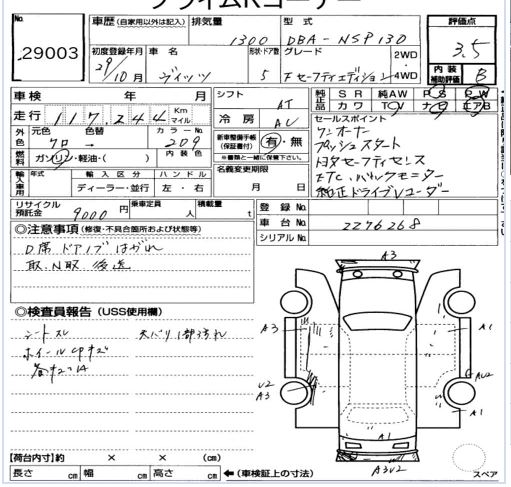 プライムRコーナー
No.
29003
車歴 (自家用以外は記入) 排気量 型式 評価点
1300 DBA-NSP130 3.5
初度登録年月 車名 形状・ドア数 グレード 2WD 4WD 内装補助評価
29/10月 ヴィッツ 5 Fセーフティエディション B
車検 年 月
走行 117,244 Km マイル
シフト AT
純正品 SR 純AW PS PW
カワ TV ナビ エアB
冷房 AC
セールスポイント
ワンオーナー
プッシュスタート
トヨタセーフティセンス
ETC、バックモニター
純正ドライブレコーダー
外色 元色 色替 カラーNo.
クロ → 209
燃料 ガソリン・軽油・( ) 内装色
新車整備手帳(保証書付) 有・無
※書類と一緒に保管下さい。
名義変更期限
月 日
輸入車用 年式 輸入区分 ハンドル
ディーラー・並行 左・右
リサイクル預託金 9000円 乗車定員 人 積載量 t
登録No.
車台No. 2276268
シリアルNo.
◎注意事項 (修復・不具合箇所および状態等)
D席ドアノブはがれ
取、N取 後送
◎検査員報告 (USS使用欄)
シートスレ 天バリ1部汚れ
ホイールCPキズ
A3
A3 A1
U2
A3
AU2
A1
A1
A3U2
スペア
【荷台内寸】約 × × (cm)
長さ cm 幅 cm 高さ cm ←(車検証上の寸法)